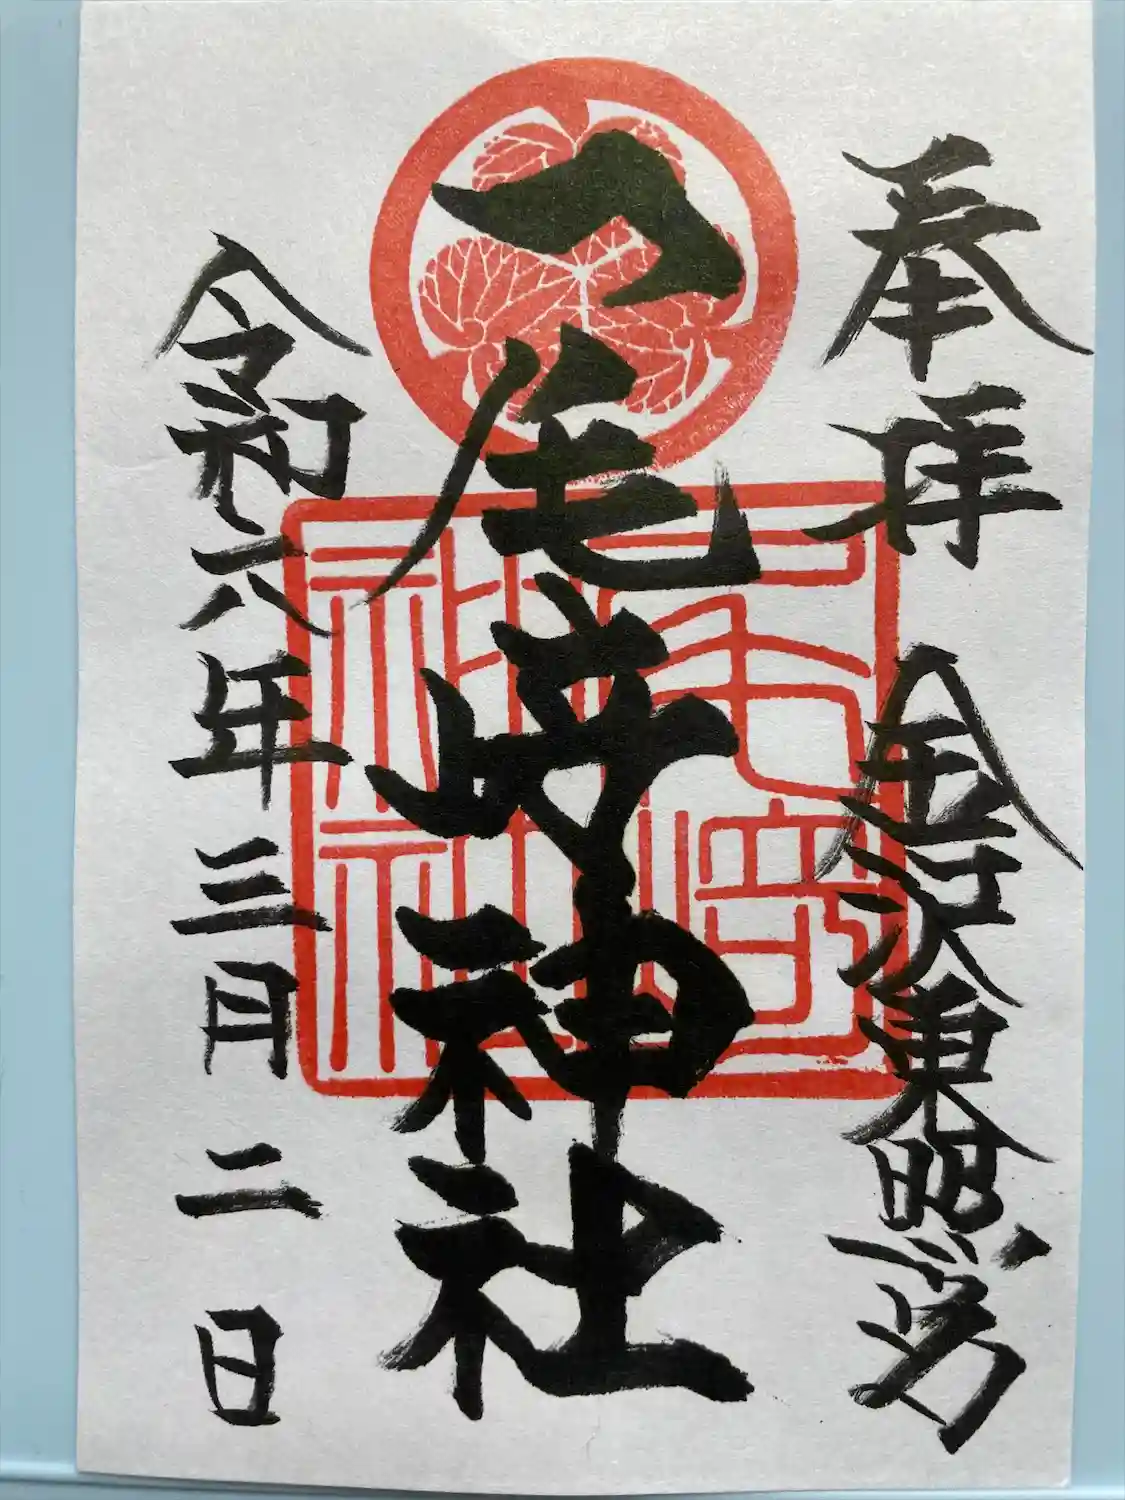 奉拝 金沢東照宮
尾崎神社
令和六年三月二日
尾崎
神社